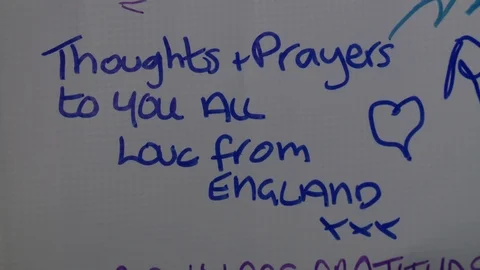 Thoughts + Prayers
to you All
Love from
ENGLAND
xxx